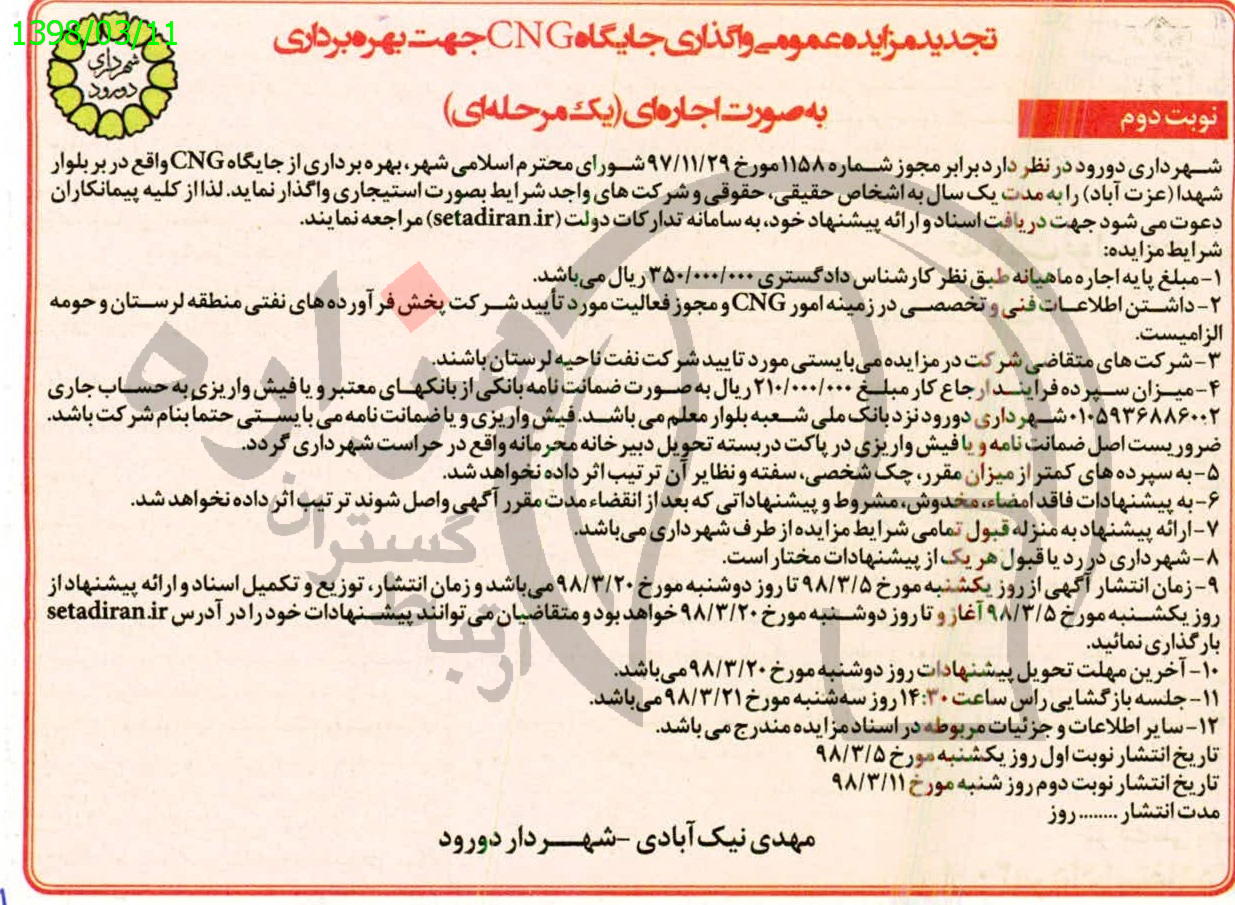 1398/03/11
شهرداری
دورود
تجدید مزایده عمومی واگذاری جایگاه CNG جهت بهره برداری
به صورت اجاره‌ای (یک مرحله‌ای)
نوبت دوم
شهرداری دورود در نظر دارد برابر مجوز شماره ۱۱۵۸ مورخ ۹۷/۱۱/۲۹ شورای محترم اسلامی شهر، بهره برداری از جایگاه CNG واقع در بر بلوار
شهدا (عزت آباد) را به مدت یک سال به اشخاص حقیقی، حقوقی و شرکت های واجد شرایط بصورت استیجاری واگذار نماید. لذا از کلیه پیمانکاران
دعوت می شود جهت دریافت اسناد و ارائه پیشنهاد خود، به سامانه تدارکات دولت (setadiran.ir) مراجعه نمایند.
شرایط مزایده:
۱- مبلغ پایه اجاره ماهیانه طبق نظر کارشناس دادگستری ۳۵۰/۰۰۰/۰۰۰ ریال می‌باشد.
۲- داشتن اطلاعات فنی و تخصصی در زمینه امور CNG و مجوز فعالیت مورد تأیید شرکت پخش فرآورده های نفتی منطقه لرستان و حومه
الزامیست.
۳- شرکت های متقاضی شرکت در مزایده می‌بایستی مورد تایید شرکت نفت ناحیه لرستان باشند.
۴- میزان سپرده فرایند ارجاع کار مبلغ ۲۱۰/۰۰۰/۰۰۰ ریال به صورت ضمانت نامه بانکی از بانکهای معتبر و یا فیش واریزی به حساب جاری
۰۱۰۵۹۳۶۸۸۶۰۰۲ شهرداری دورود نزد بانک ملی شعبه بلوار معلم می باشد. فیش واریزی و یا ضمانت نامه می بایستی حتماً بنام شرکت باشد.
ضروریست اصل ضمانت نامه و یا فیش واریزی در پاکت دربسته تحویل دبیرخانه محرمانه واقع در حراست شهرداری گردد.
۵- به سپرده های کمتر از میزان مقرر، چک شخصی، سفته و نظایر آن ترتیب اثر داده نخواهد شد.
۶- به پیشنهادات فاقد امضاء، مخدوش، مشروط و پیشنهاداتی که بعد از انقضاء مدت مقرر آگهی واصل شوند ترتیب اثر داده نخواهد شد.
۷- ارائه پیشنهاد به منزله قبول تمامی شرایط مزایده از طرف شهرداری می‌باشد.
۸- شهرداری در رد یا قبول هر یک از پیشنهادات مختار است.
۹- زمان انتشار آگهی از روز یکشنبه مورخ ۹۸/۳/۵ تا روز دوشنبه مورخ ۹۸/۳/۲۰ می‌باشد و زمان انتشار، توزیع و تکمیل اسناد و ارائه پیشنهاد از
روز یکشنبه مورخ ۹۸/۳/۵ آغاز و تا روز دوشنبه مورخ ۹۸/۳/۲۰ خواهد بود و متقاضیان می توانند پیشنهادات خود را در آدرس setadiran.ir
بارگذاری نمائید.
۱۰- آخرین مهلت تحویل پیشنهادات روز دوشنبه مورخ ۹۸/۳/۲۰ می‌باشد.
۱۱- جلسه بازگشایی راس ساعت ۱۴:۳۰ روز سه‌شنبه مورخ ۹۸/۳/۲۱ می‌باشد.
۱۲- سایر اطلاعات و جزئیات مربوطه در اسناد مزایده مندرج می باشد.
تاریخ انتشار نوبت اول روز یکشنبه مورخ ۹۸/۳/۵
تاریخ انتشار نوبت دوم روز شنبه مورخ ۹۸/۳/۱۱
مدت انتشار ........ روز
مهدی نیک آبادی - شهردار دورود
هزاره
گستران
ارتباط